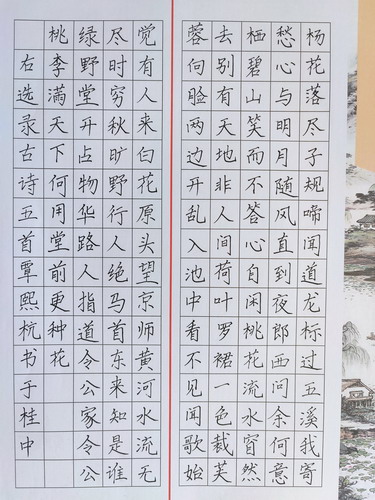 杨花落尽子规啼闻道龙标过五溪我寄
愁心与明月随风直到夜郎西问余何意
栖碧山笑而不答心自闲桃花流水窅然
去别有天地非人间荷叶罗裙一色裁芙
蓉向脸两边开乱入池中看不见闻歌始
觉有人来白花原头望京师黄河水流无
尽时穷秋旷野行人绝马首东来知是谁
绿野堂开占物华路人指道令公家令公
桃李满天下何用堂前更种花
右选录古诗五首覃熙杭书于桂中